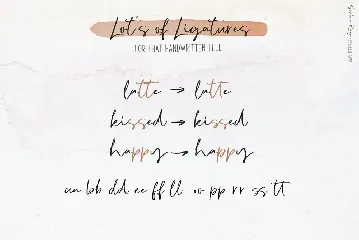 Lot's of Ligatures
FOR THAT HANDWRITTEN FEEL
latte → latte
kissed → kissed
happy → happy
an bb dd ee ff ll oo pp rr ss tt